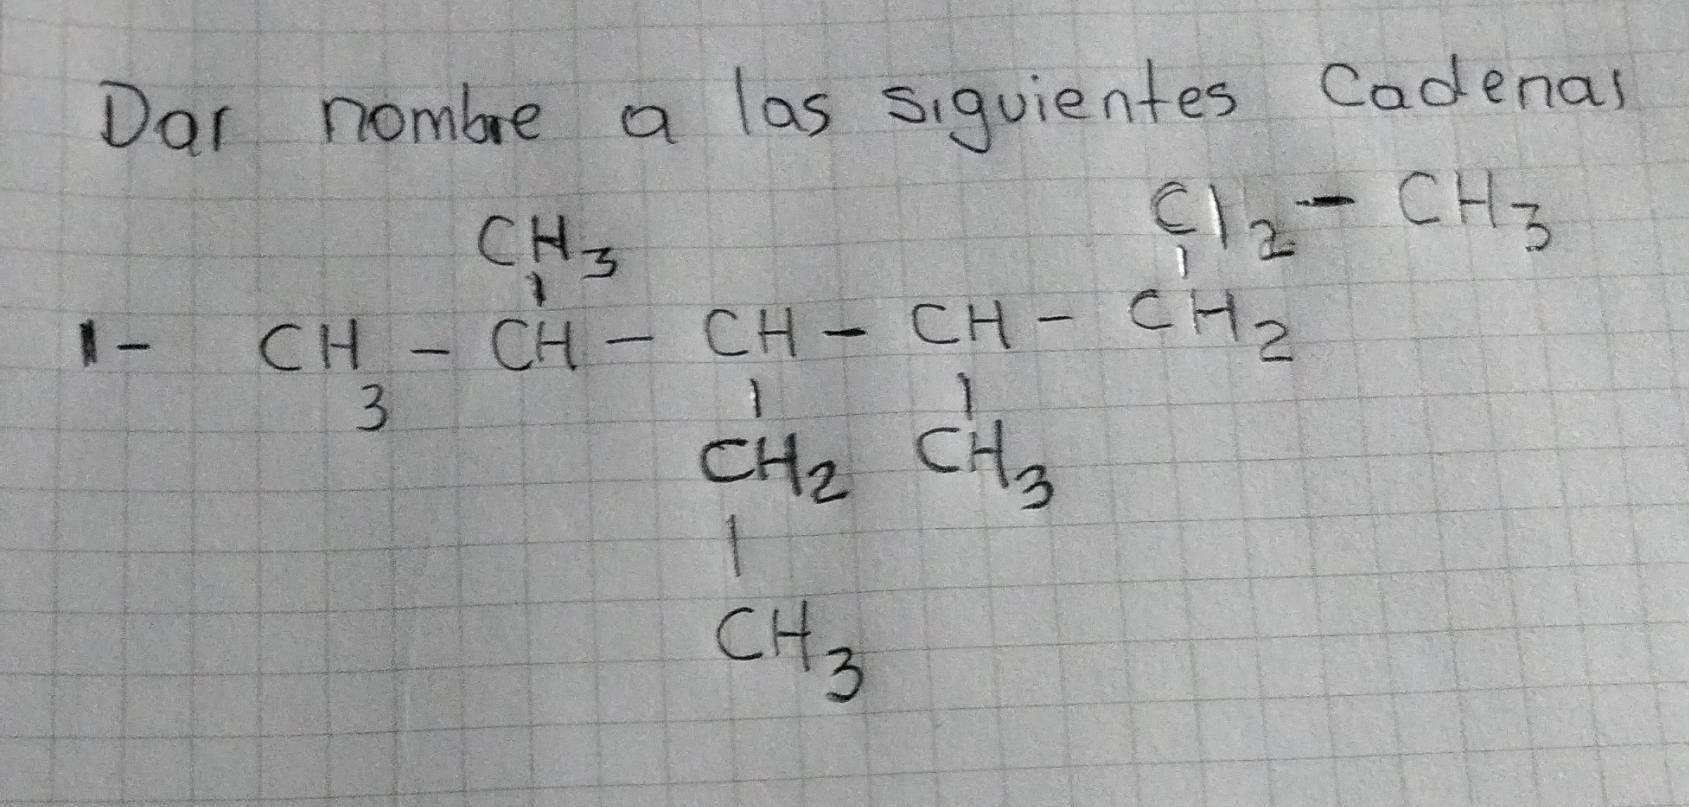 Dar nombre a las siguientes Cadenas
CH3 Cl2 - CH3
1- CH3 - CH - CH - CH - CH2
CH2 CH3
CH3